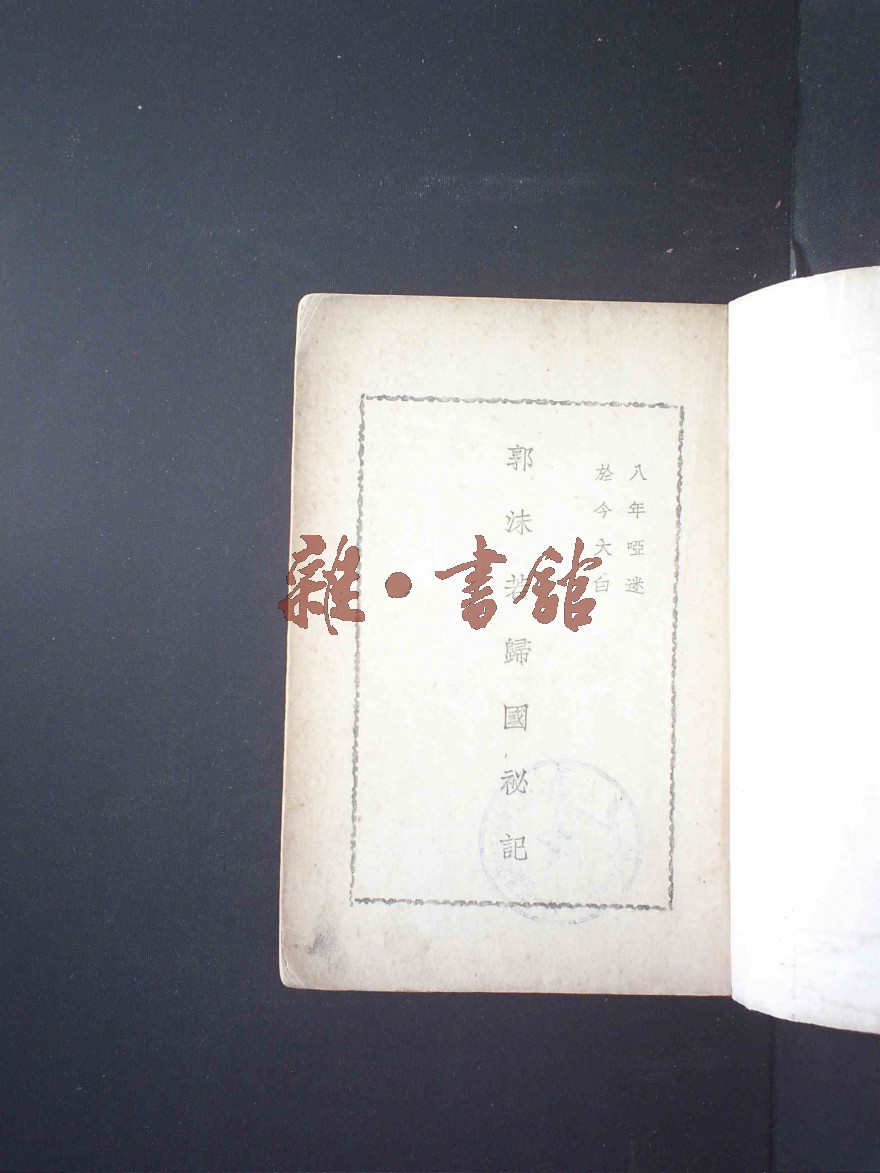 八年啞迷
於今大白
郭沫若歸國祕記
雜·書館